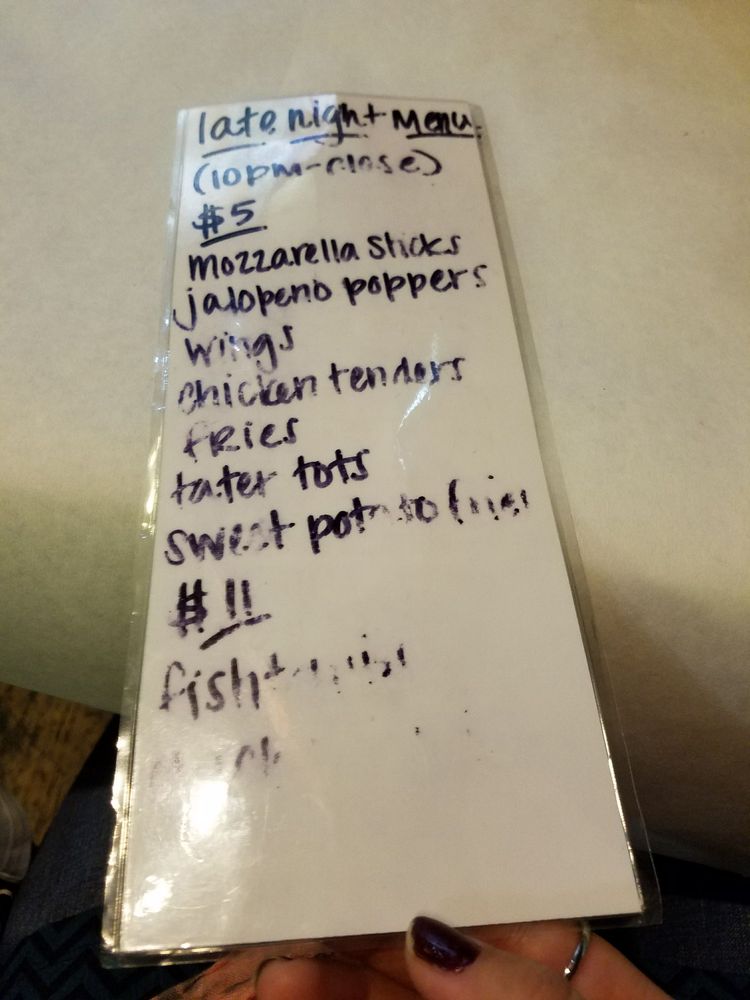 late night menu
(10pm-close)
$5
mozzarella sticks
jalopeno poppers
wings
chicken tenders
fries
tater tots
sweet potato fries
$11
fish